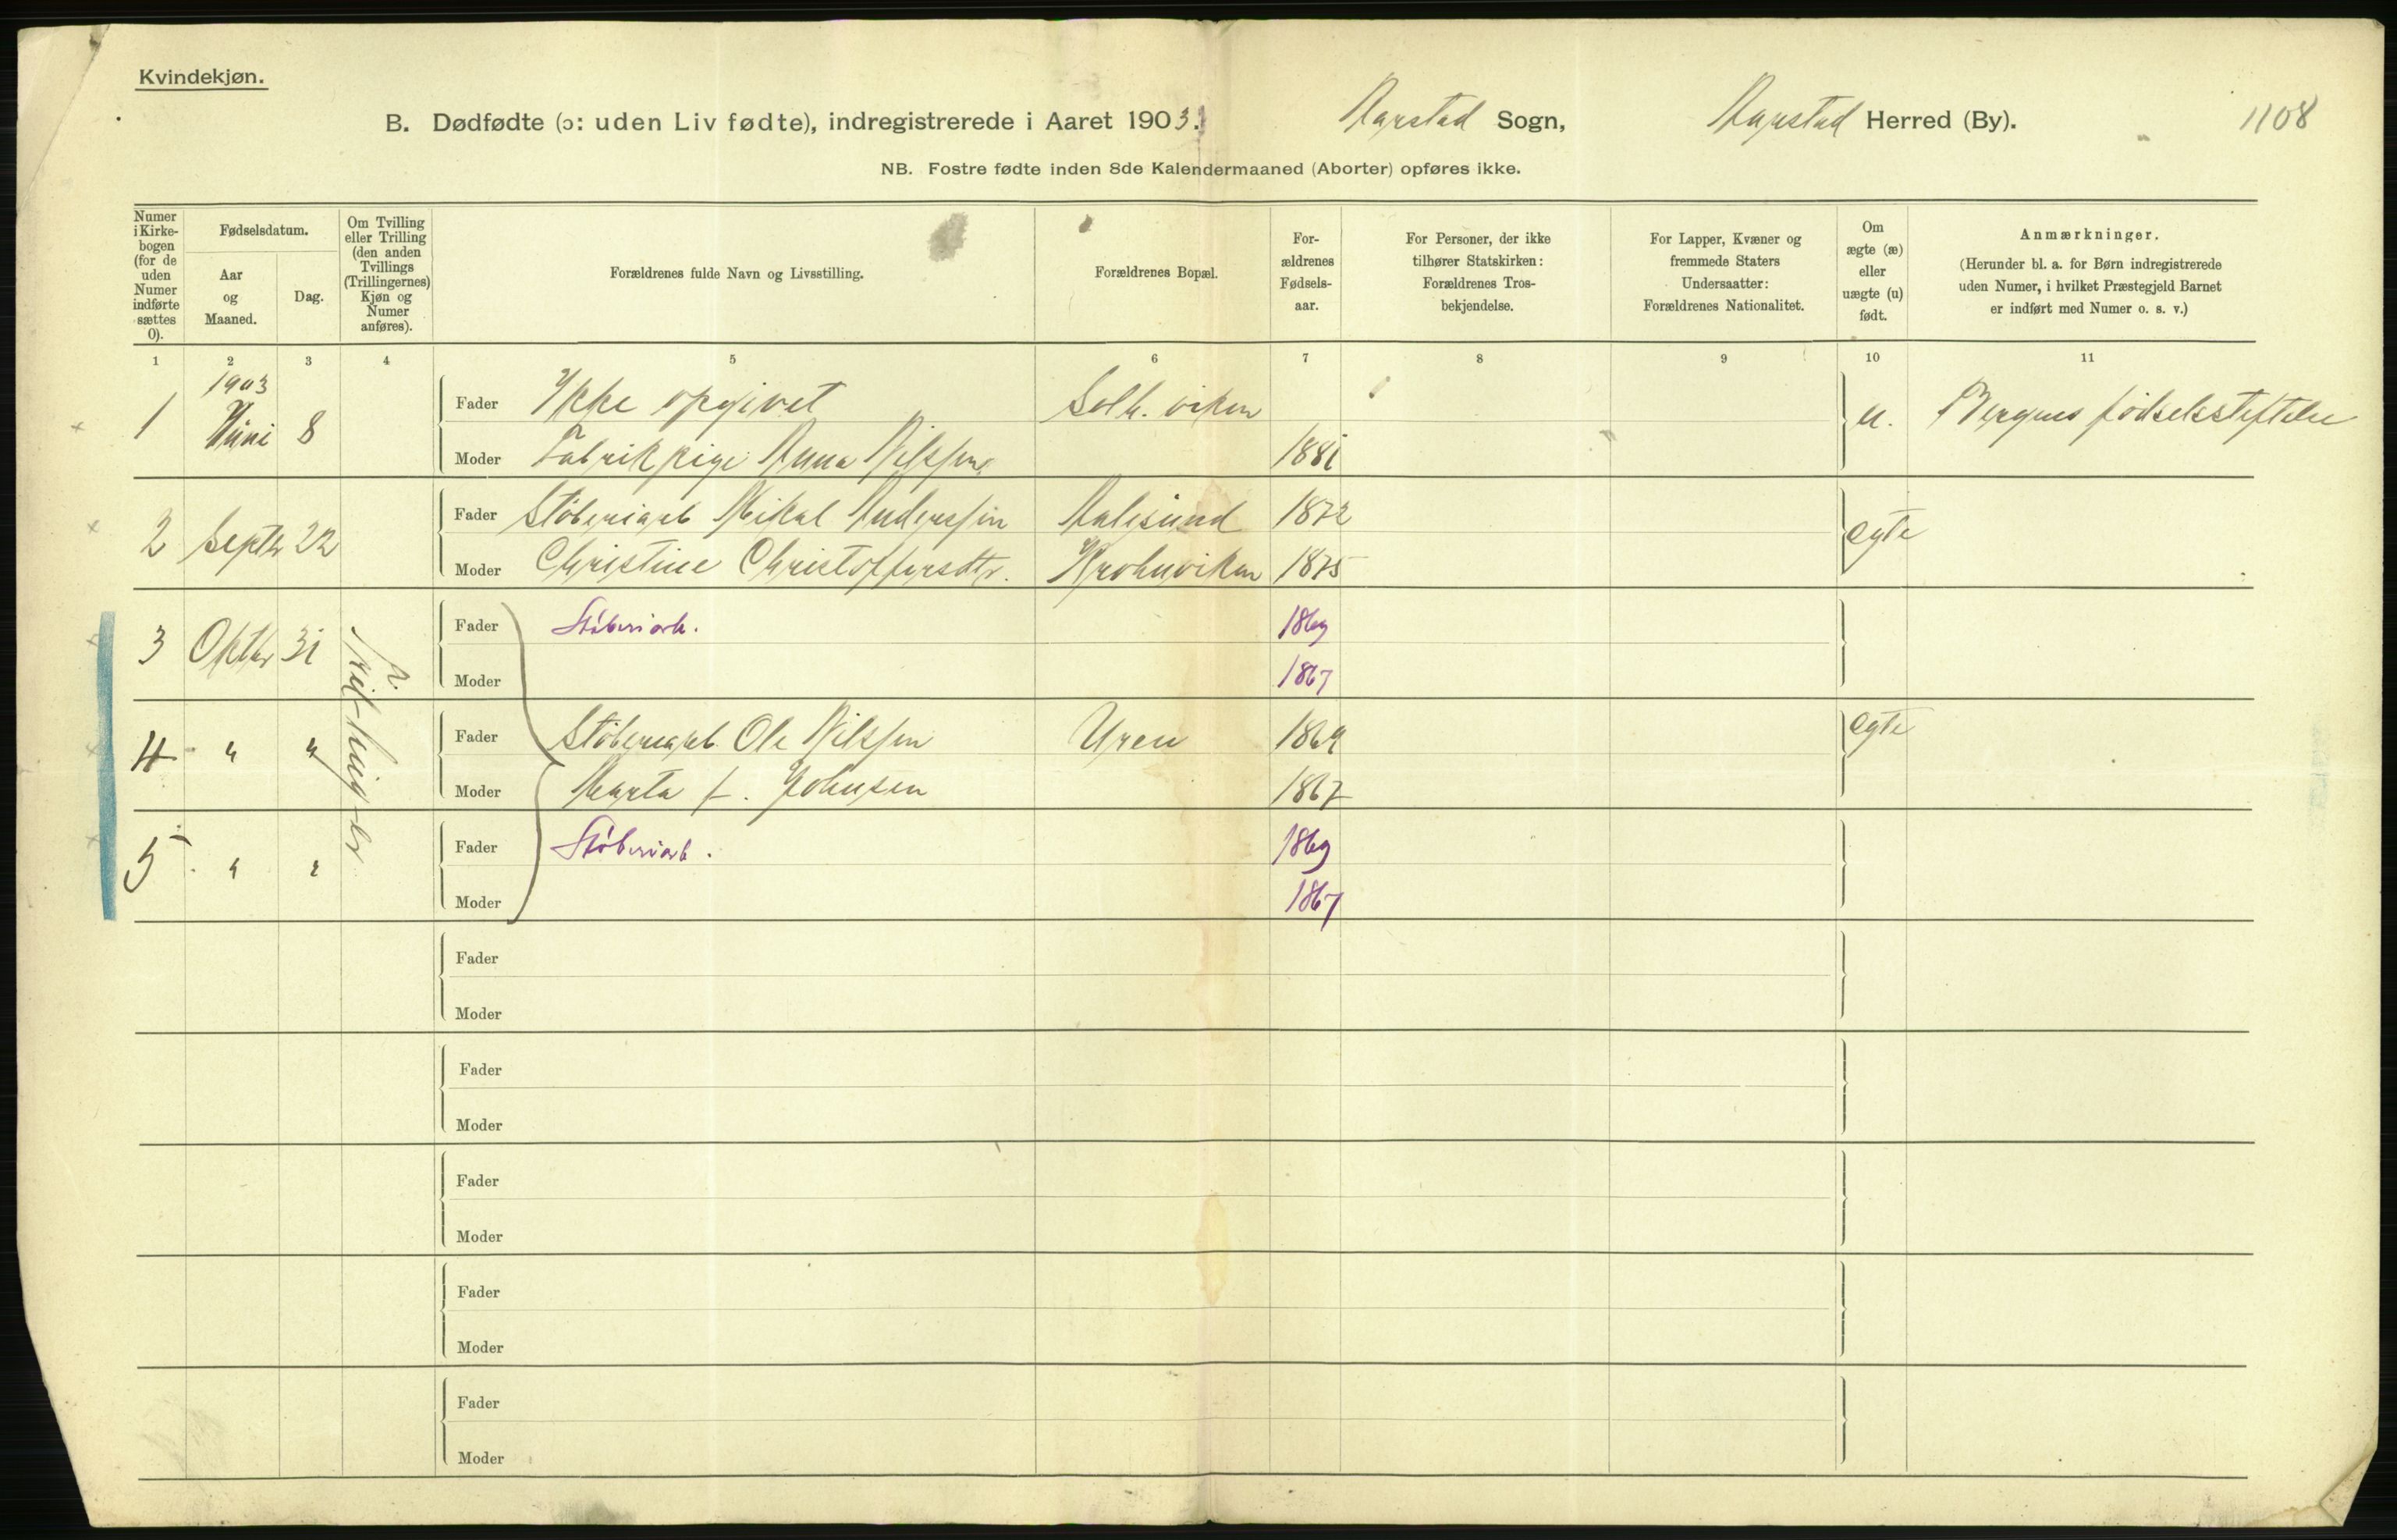 Kvindekjøn.
B. Dødfødte (ɔ: uden Liv fødte), indregistrerede i Aaret 1903. Aarstad Sogn, Aarstad Herred (By). 1108
NB. Fostre fødte inden 8de Kalendermaaned (Aborter) opføres ikke.
Numer i Kirke-bogen (for de uden Numer indførte sættes 0).
Fødselsdatum.
Aar og Maaned.
Dag.
Om Tvilling eller Trilling (den anden Tvillings (Trillingernes) Kjøn og Numer anføres).
Forældrenes fulde Navn og Livsstilling.
Forældrenes Bopæl.
For-ældrenes Fødsels-aar.
For Personer, der ikke tilhører Statskirken: Forældrenes Tros-bekjendelse.
For Lapper, Kvæner og fremmede Staters Undersaatter: Forældrenes Nationalitet.
Om ægte (æ) eller uægte (u) født.
Anmærkninger.
(Herunder bl. a. for Børn indregistrerede uden Numer, i hvilket Præstegjeld Barnet er indført med Numer o. s. v.)
1 2 3 4 5 6 7 8 9 10 11
1903
1 Juni 8 Fader Ikke opgivet Solh. viken u. Bergens fødselsstiftelse
Moder Fabrikpige Anna Nilssen 1881
2 Septbr 22 Fader Støberiarb Mikal Anderssen Aalesund 1872 egte
Moder Christine Christoffersdtr. Krohnviken 1875
3 Oktbr 31 Fader Støberiarb. 1869
Moder 1867
4 " " Fader Støberiarb. Ole Nilssen Uren 1869 egte
Moder Marta f. Johnsen 1867
5 " " Fader Støberiarb. 1869
Moder 1867
Fader
Moder
Fader
Moder
Fader
Moder
Fader
Moder
Fader
Moder